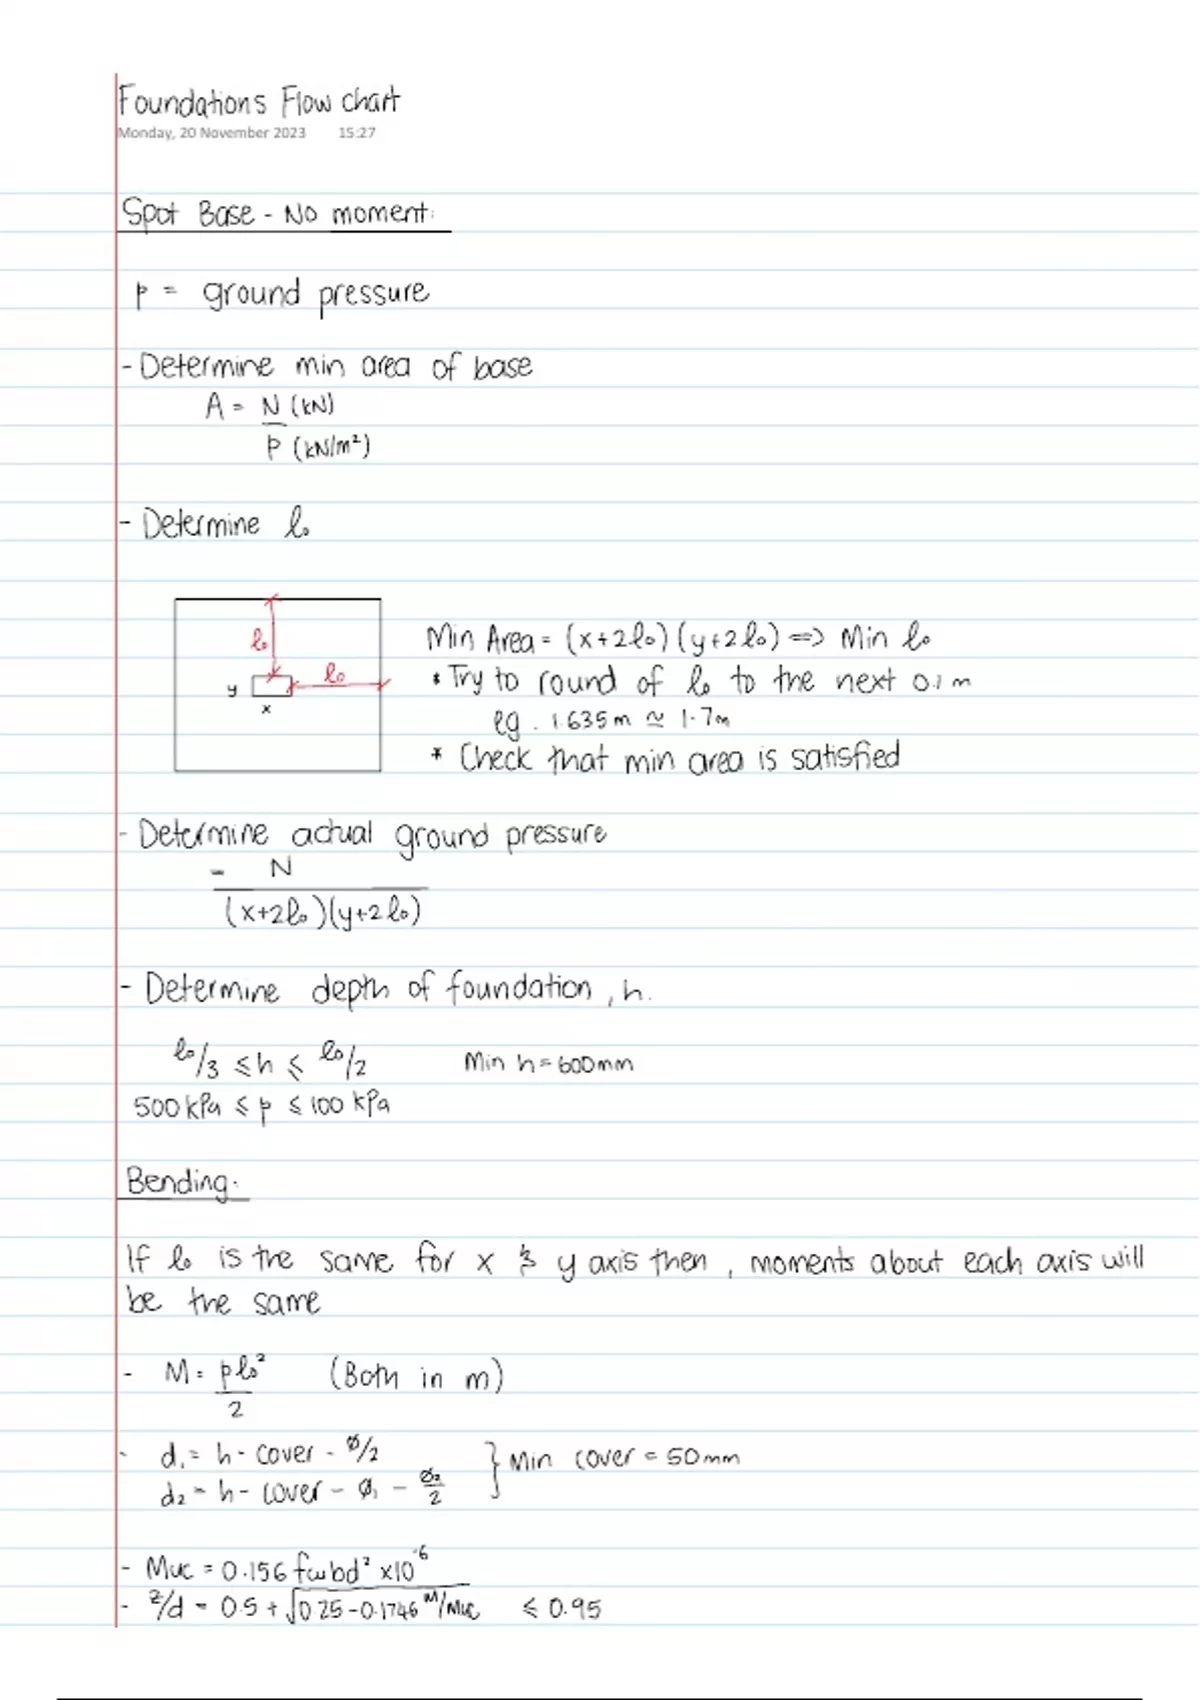 Foundations Flow chart
Monday, 20 November 2023 15:27
Spot Base - No moment:
p = ground pressure
- Determine min area of base
A = N (kN)
p (kN/m²)
- Determine l₀
l₀
l₀
y
x
Min Area = (x+2l₀)(y+2l₀) => Min l₀
* Try to round of l₀ to the next 0.1 m
eg. 1.635m ≈ 1.7m
* Check that min area is satisfied
- Determine actual ground pressure
= N
(x+2l₀)(y+2l₀)
- Determine depth of foundation, h.
l₀/3 ≤ h ≤ l₀/2 Min h = 600mm
500 kPa ≤ p ≤ 100 kPa
Bending.
If l₀ is the same for x & y axis then, moments about each axis will
be the same
- M = pl₀² (Both in m)
2
- d₁ = h - cover - Ø/2 } Min cover = 50mm
d₂ = h - cover - Ø₁ - Ø₂/2
- Muc = 0.156 fcubd² x10⁻⁶
- z/d = 0.5 + √0.25-0.1746 M/Muc ≤ 0.95